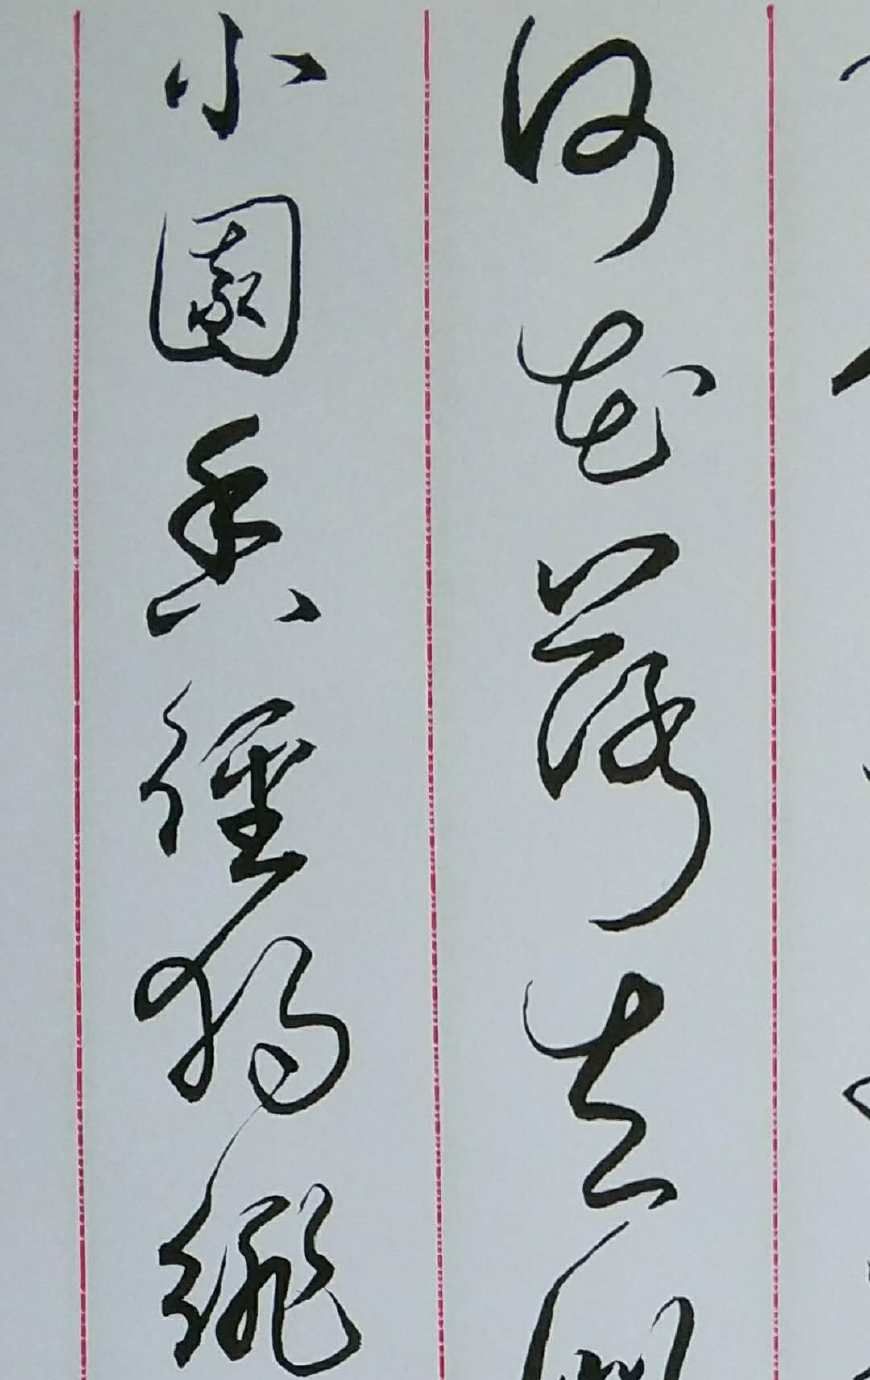 何花落去似
小園香徑獨徘